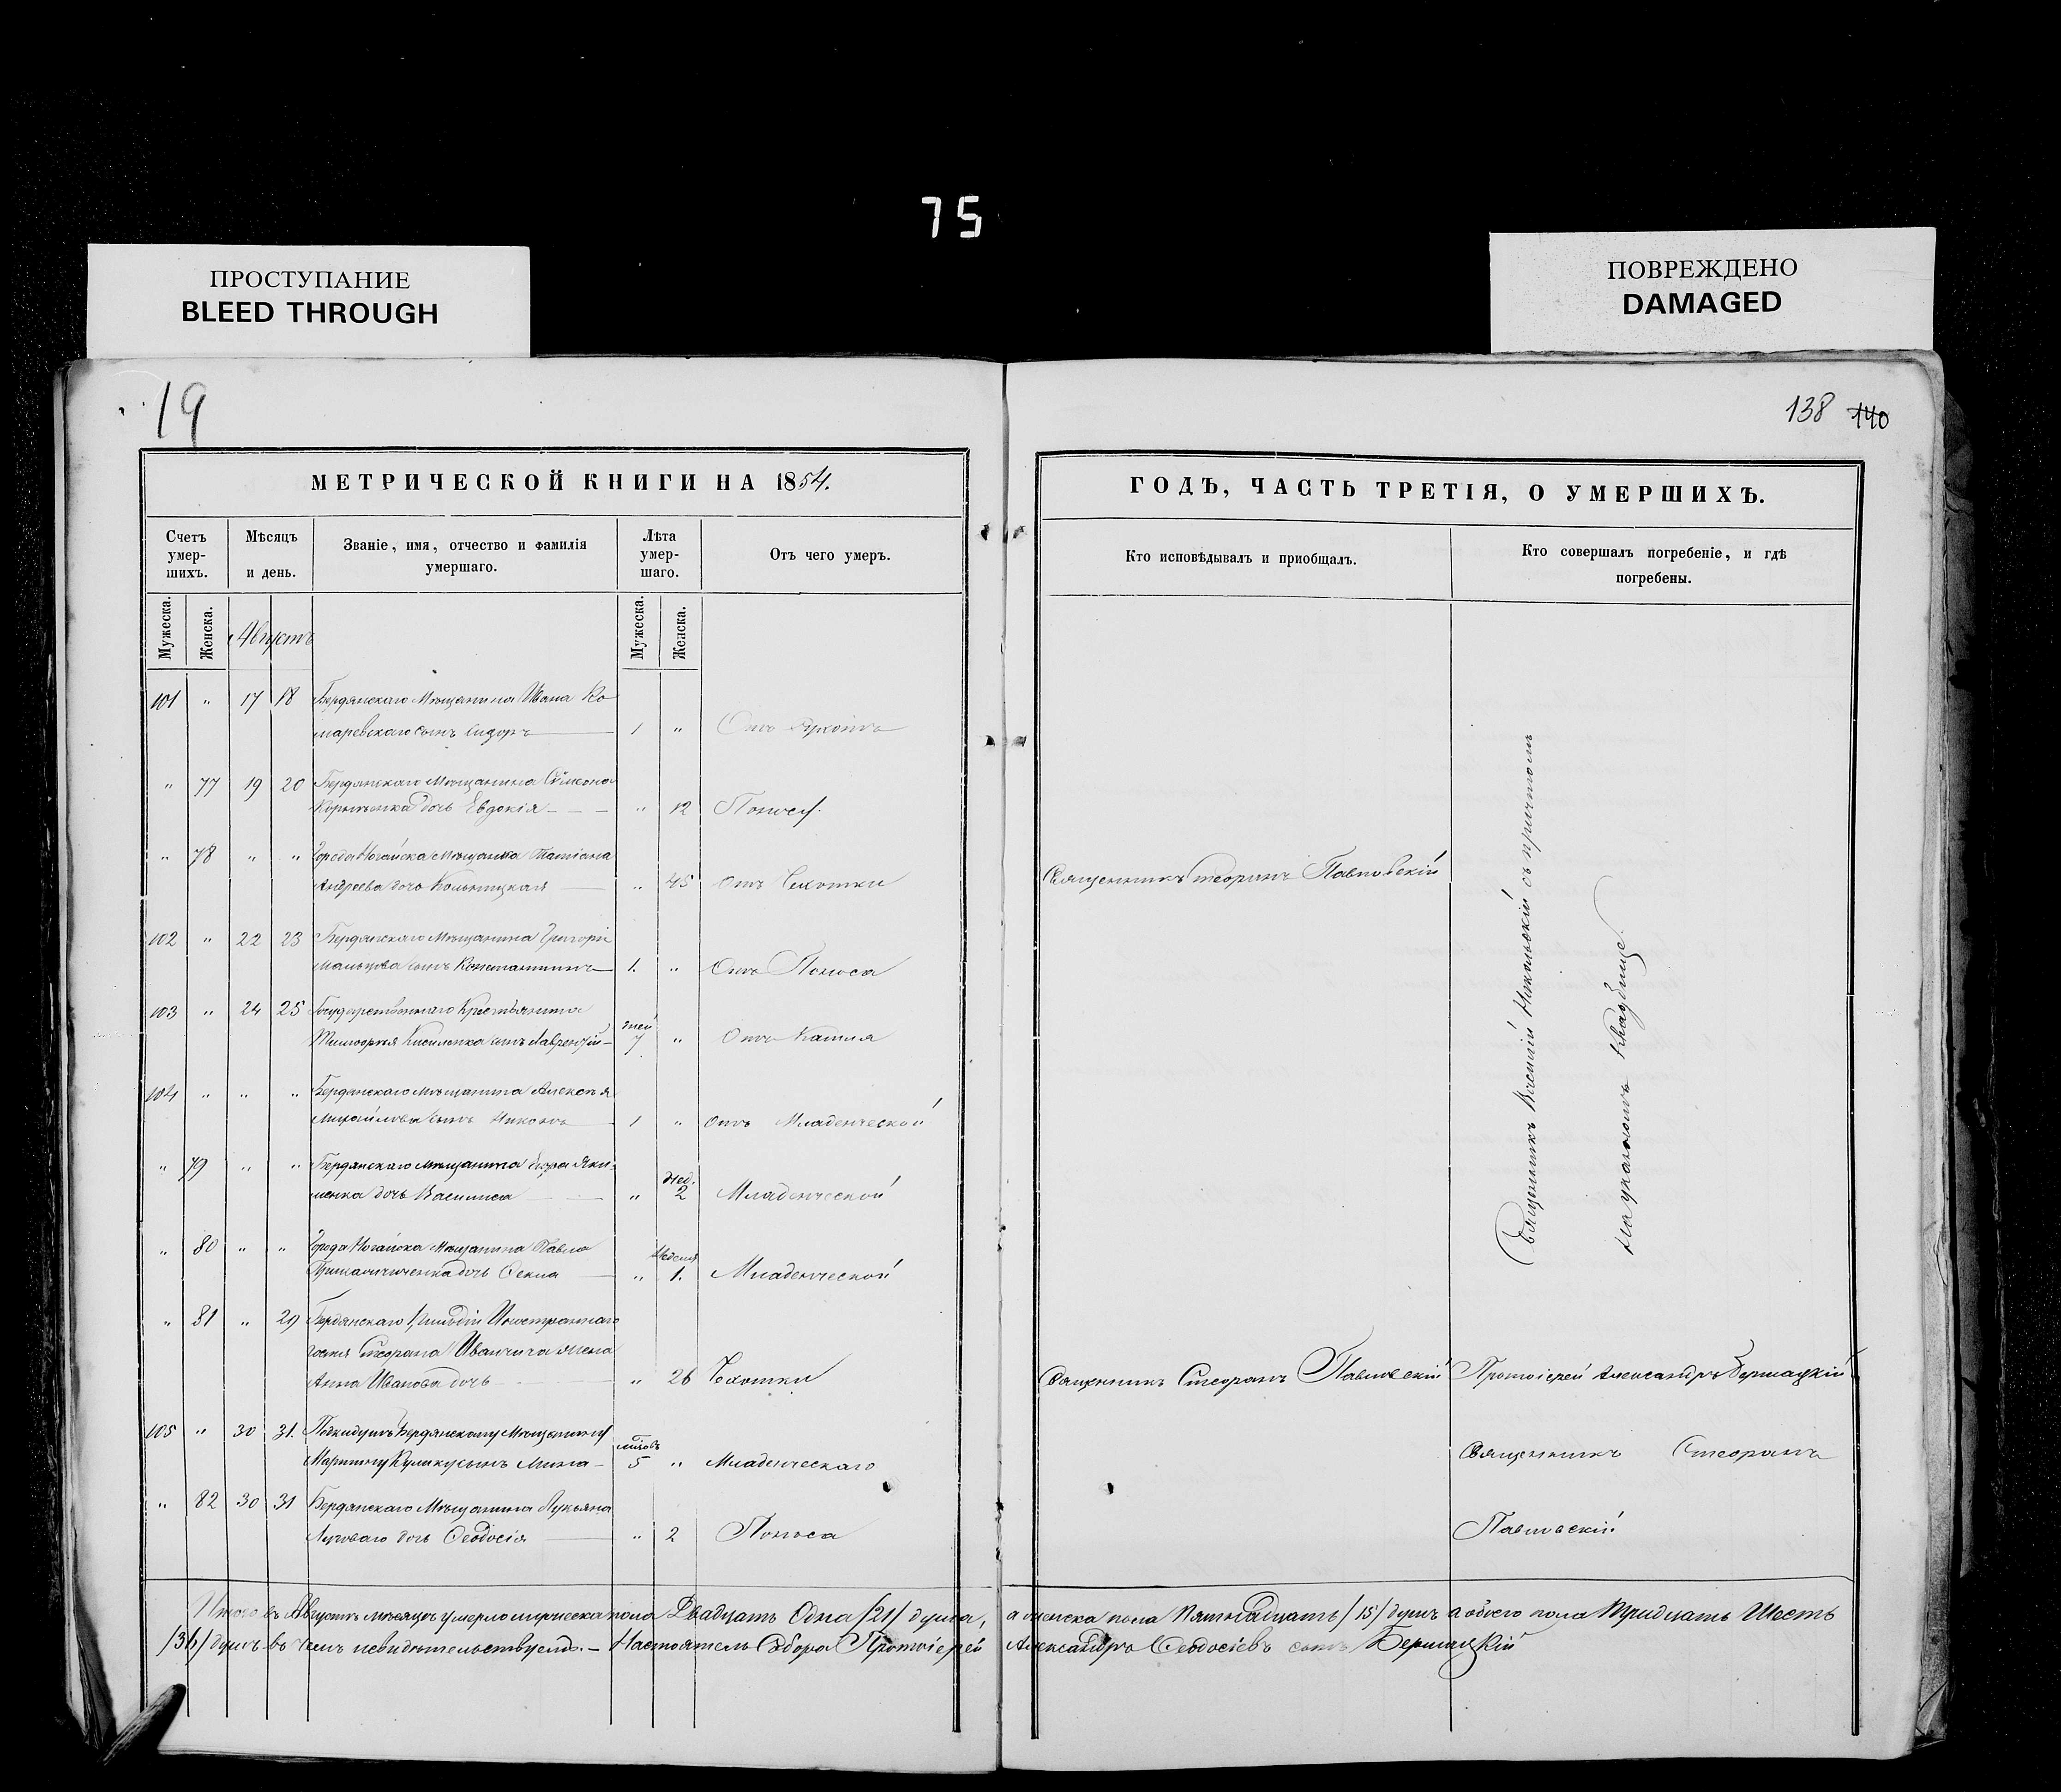 75
ПРОСТУПАНИЕ
BLEED THROUGH
ПОВРЕЖДЕНО
DAMAGED
19
138 140
МЕТРИЧЕСКОЙ КНИГИ НА 1854.
ГОДЪ, ЧАСТЬ ТРЕТІЯ, О УМЕРШИХЪ.
Счетъ умер-шихъ.
Мѣсяцъ и день.
Званіе, имя, отчество и фамилія умершаго.
Лѣта умер-шаго.
Отъ чего умеръ.
Кто исповѣдывалъ и приобщалъ.
Кто совершалъ погребеніе, и гдѣ погребены.
Мужеска. Женска. Августъ Мужеска. Женска.
101 " 17 18 Бердянскаго Мѣщанина Ивана Ко
маревскаго сынъ Сидоръ 1 " Отъ
" 77 19 20 Бердянскаго Мѣщанина Симеона
дочь Евдокія " 12
" 78 " " Города Ногайска Мѣщанка Татіана
Андреева дочь " 45 Отъ Чахотки Священникъ Стефанъ Павловскій
102 " 22 23 Бердянскаго Мѣщанина Григорія
Мальцова сынъ Константинъ 1. " Отъ Поноса
103 " 24 25 Государственнаго Крестьянина
Тимофея Киселенка сынъ Лаврентій дней 7 " Отъ Кашля
104 " " " Бердянскаго Мѣщанина Алексѣя
Михайлова сынъ Никонъ 1 " Отъ Младенческой
" 79 " " Бердянскаго Мѣщанина Яки-
менка дочь Василиса " Нед. 2 Младенческой
" 80 " " Города Ногайска Мѣщанина Павла
дочь Ѳекла " Недѣля 1. Младенческой
" 81 " 29 Бердянскаго Гильдіи Иностраннаго
гостя Стефана Иванчича жена
Анна Иванова дочь " 26 Чахотки Священникъ Стефанъ Павловскій Протоіерей Александръ Бершацкій
105 " 30 31. Подкидышъ Бердянскому Мѣщанину
Мартину Кулику сынъ Мина 5 " Младенческаго Священникъ Стефанъ
" 82 30 31 Бердянскаго Мѣщанина Лукьяна
Луговаго дочь Ѳеодосія " 2 Поноса Павловскій
Священникъ Василій Никольскій съ причтомъ
на указномъ кладбище.
Итого въ Августѣ мѣсяцѣ умерло мужеска пола Двадцать Одна /21/ душа, а женска пола Пятнадцать /15/ душъ а обоего пола Тридцать Шесть
/36/ душъ въ чемъ и свидѣтельствуемъ. – Настоятель Собора Протоіерей Александръ Ѳеодосіевъ сынъ Бершацкій